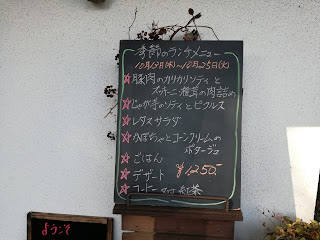 季節のランチメニュー
10/13(木)〜10/25(火)
☆豚肉のカリカリソティと
ズッキーニ椎茸の肉詰め
☆じゃが芋のソティとピクルス
☆レタスサラダ
☆かぼちゃとコーンクリームの
ポタージュ
☆ごはん
☆デザート ¥1250-
☆コーヒー または 紅茶
ようこそ